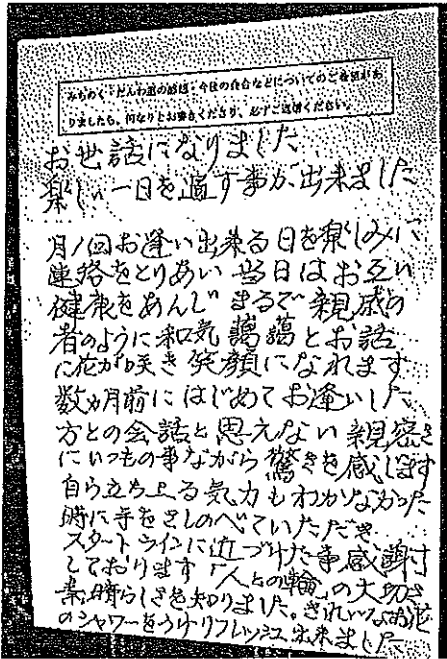 みちのく・だんわ室の感想、今後の会合などについてのご意見があ
りましたら、何なりとお書きくださり、必ずご返信ください。
お世話になりました
楽しい一日を過す事が出来ました
月1回お逢い出来る日を楽しみに
連絡をとりあい 当日はお互い
健康をあんじ まるで親戚の
者のように和気藹藹とお話
に花が咲き 笑顔になれます
数ヵ月前にはじめてお逢いした
方との会話と思えない親密さ
にいつもの事ながら驚きを感じます
自ら立ち上る気力もわかなかった
時に手をさしのべていただき
スタートラインに近づけた事感謝
しております 「人との輪」の大切さ
素晴らしさを知りました。きれいなお花
のシャワーをうけリフレッシュ出来ました